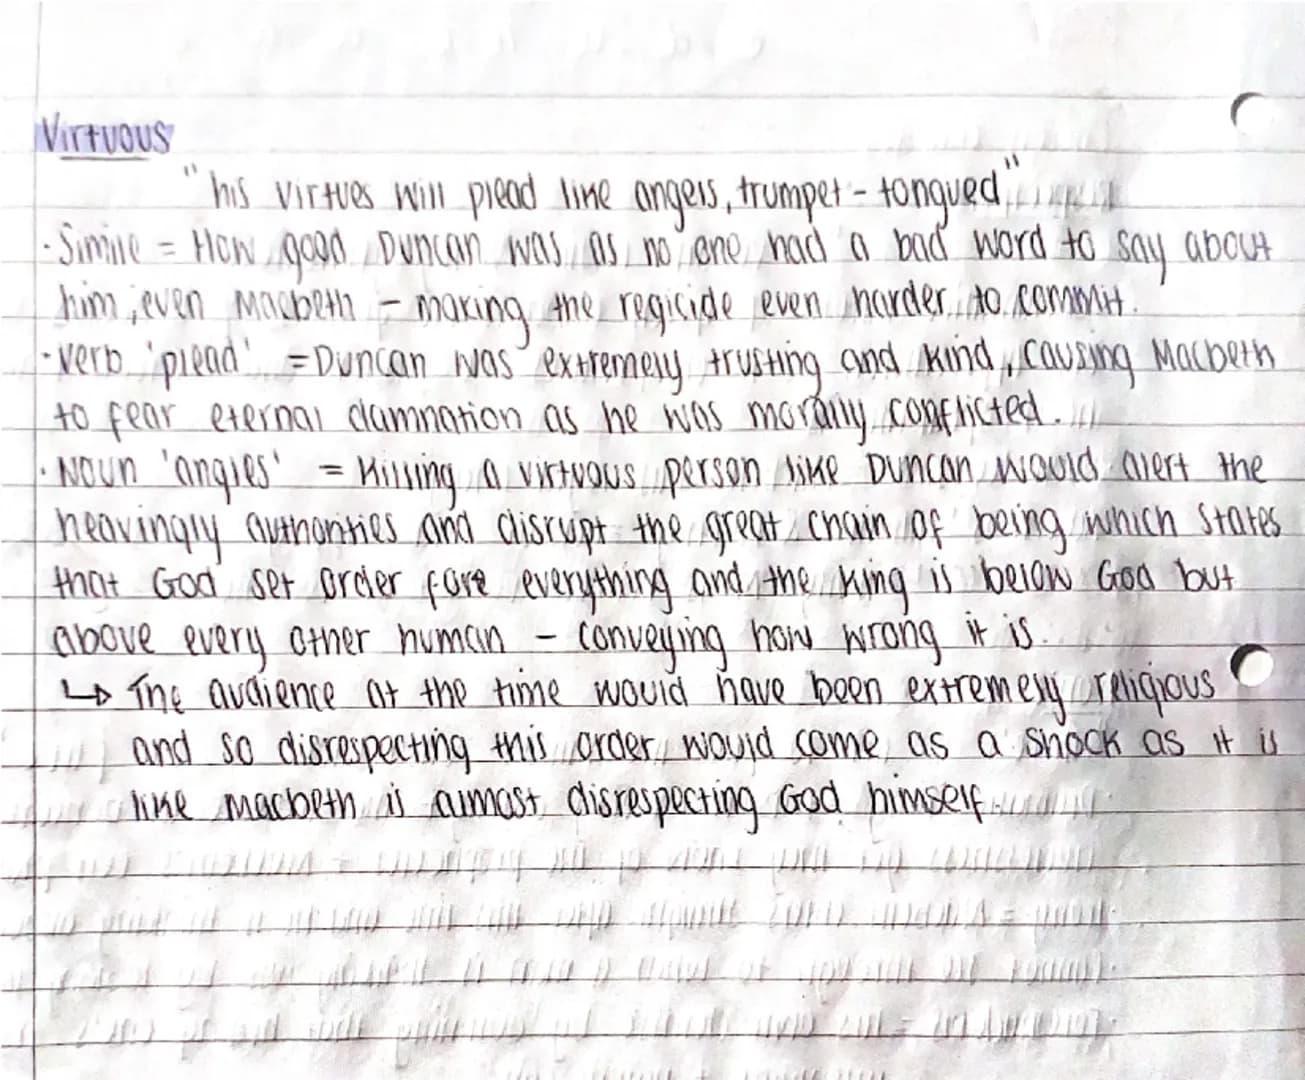 Virtuous
"his virtues will plead like angels, trumpet-tongued"
· Simile = How good Duncan was as no one had a bad word to say about
him, even Macbeth - making the regicide even harder to commit.
· Verb 'plead' = Duncan was extremely trusting and kind, causing Macbeth
to fear eternal damnation as he was morally conflicted.
· Noun 'angles' = Killing a virtuous person like Duncan would alert the
heavingly authorities and disrupt the great chain of being which states
that God set order fore everything and the king is below God but
above every other human - conveying how wrong it is.
↳ The audience at the time would have been extremely religious
and so disrespecting this order would come as a shock as it is
like macbeth is almost disrespecting God himself.